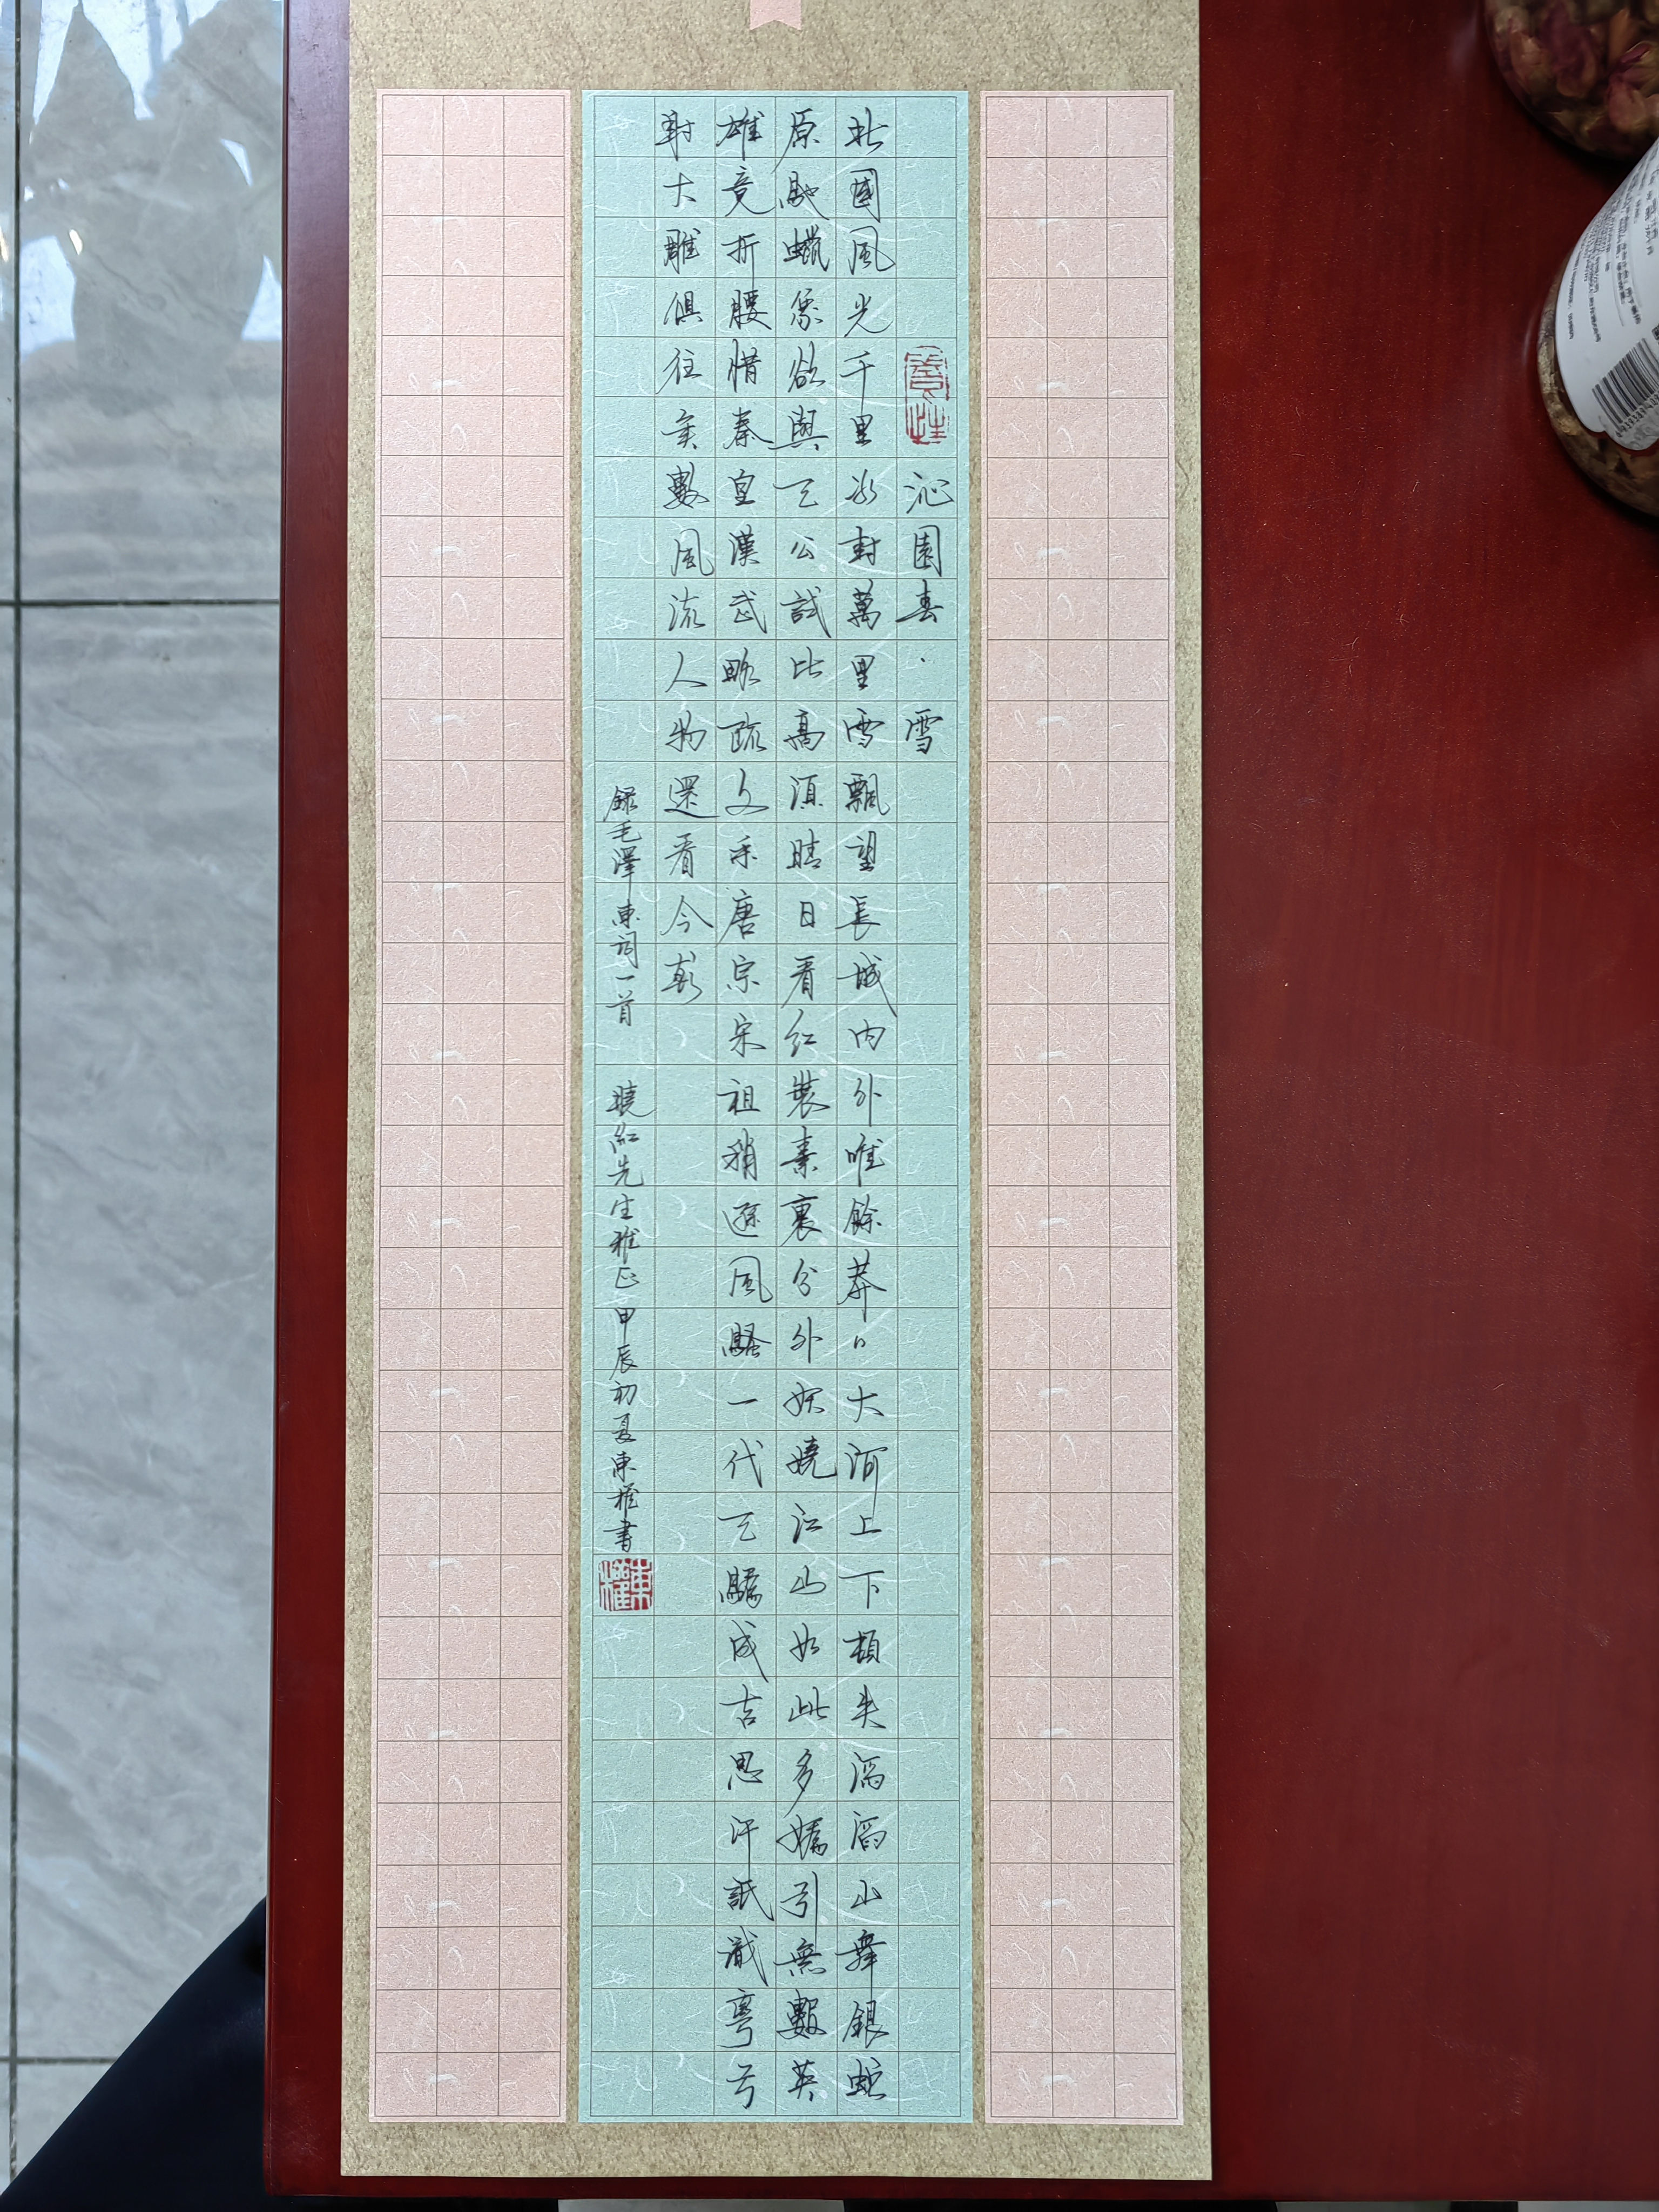 沁園春·雪
北國風光千里冰封萬里雪飄望長城内外唯餘莽〻大河上下頓失滔滔山舞銀蛇
原馳蠟象欲與天公試比高須晴日看紅裝素裹分外妖嬈江山如此多嬌引無數英
雄竟折腰惜秦皇漢武略疏文采唐宗宋祖稍遜風騷一代天驕成古思汗祇識彎弓
射大雕俱往矣數風流人物還看今朝
錄毛澤東詞一首 曉紅先生雅正 甲辰初夏東權書